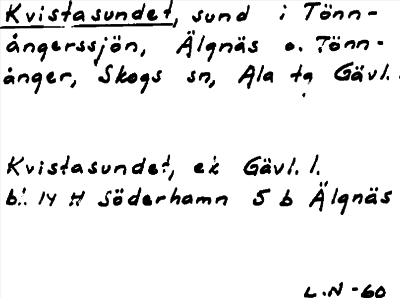 Kvistasundet, sund i Tönn-
ångerssjön, Älgnäs o. Tönn-
ånger, Skogs sn, Ala tg Gävl. l.
Kvistasundet, ek Gävl. l.
bl. 14 H Söderhamn 5 b Älgnäs
L.N-60